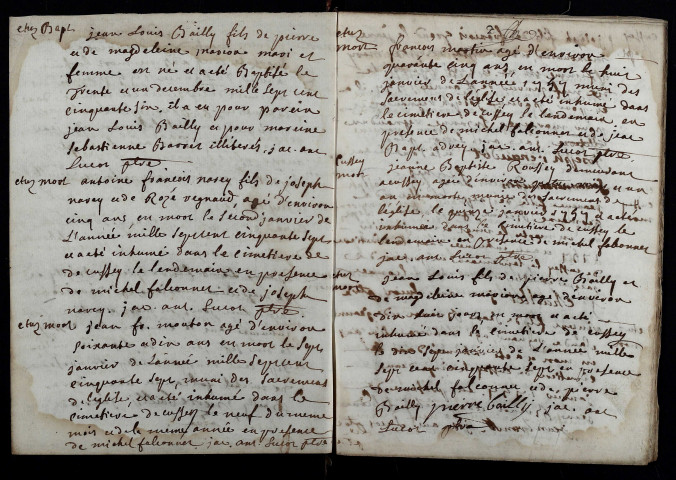 etuz Bapt. jean Louis Bailly fils de pierre
et de magdeleine marion mari et
femme est né et a eté Baptisé le
trente et un decembre mille sept cent
cinquante six, il a eu pour parein
jean Louis Bailly et pour mareine
sebastienne Barrer illiterés, jac. an.
Sucor ptre
etuz mort antoine francois narey fils de joseph
narey et de Roze regnaud agé d'environ
cinq ans est mort le second janvier de
L'année mille sept cent cinquante sept
et a eté inhumé dans le cimetiere de
de cussey le lendemain en presence
de michel falconnet et de joseph
narey. jac. ant. Sucor ptre
etuz mort jean fr. mouton agé d'environ
soixante et dix ans est mort le sept
janvier de L'année mille sept cent
cinquante sept, muni des sacremens
de L'eglise et a eté inhumé dans le
cimetiere de cussey le neuf du meme
mois et de la meme année en presence
de michel falconnet jac. ant. Sucor ptre
etuz mort francois martin agé d'environ
quarante cinq ans, est mort le huit
janvier de L'année 1757 muni des
sacremens de l'eglise et a eté inhumé dans
le cimetiere de cussey le lendemain, en
presence de michel falconnet et de jac
Bapt. jac. ant. Sucor ptre
Cussey mort jeanne Baptiste Roussey demeurant
a cussey agée d'environ et un
an est morte munie des sacremens de
l'eglise, le janvier 1757 et a eté
inhumée dans le cimetiere de cussey le
lendemain en presence de michel falconnet
jac. ant. Sucor ptre
etuz mort jean Louis fils de pierre Bailly et
de magdeleine marion agé d'environ
dix huit jours est mort et a eté
inhumé dans le cimetiere de cussey
le dix sept janvier de L'année mille
sept cent cinquante sept en presence
de michel falconnet et de pierre
Bailly pierre bailly jac. ant
Sucor ptre